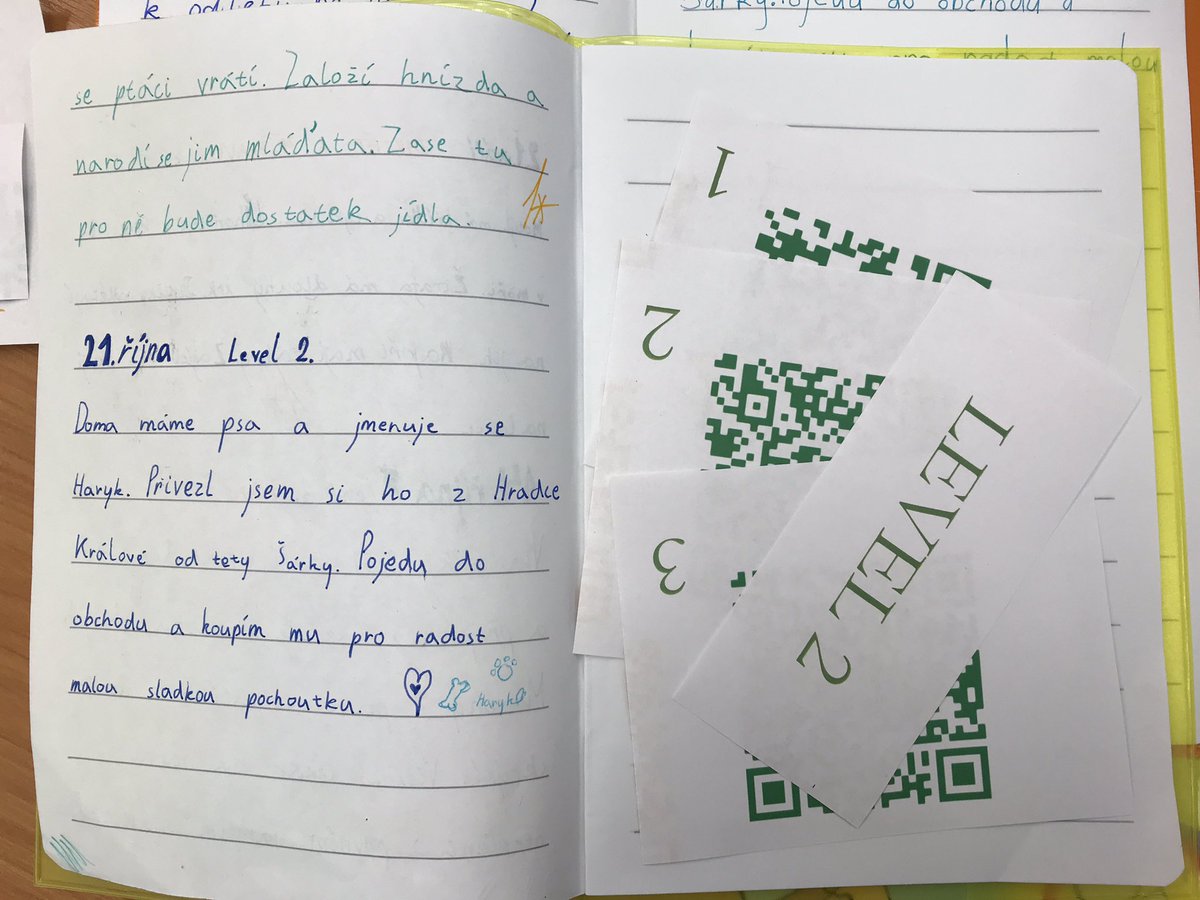 k odletu
se ptáci vrátí. Založí hnízda a
narodí se jim mláďata. Zase tu
pro ně bude dostatek jídla.
1x
21. října Level 2.
Doma máme psa a jmenuje se
Haryk. Přivezl jsem si ho z Hradce
Králové od tety Šárky. Pojedu do
obchodu a koupím mu pro radost
malou sladkou pochoutku.
Haryk
Šárky. Pojedu do obchodu a
radost malou
1
2
3
LEVEL 2